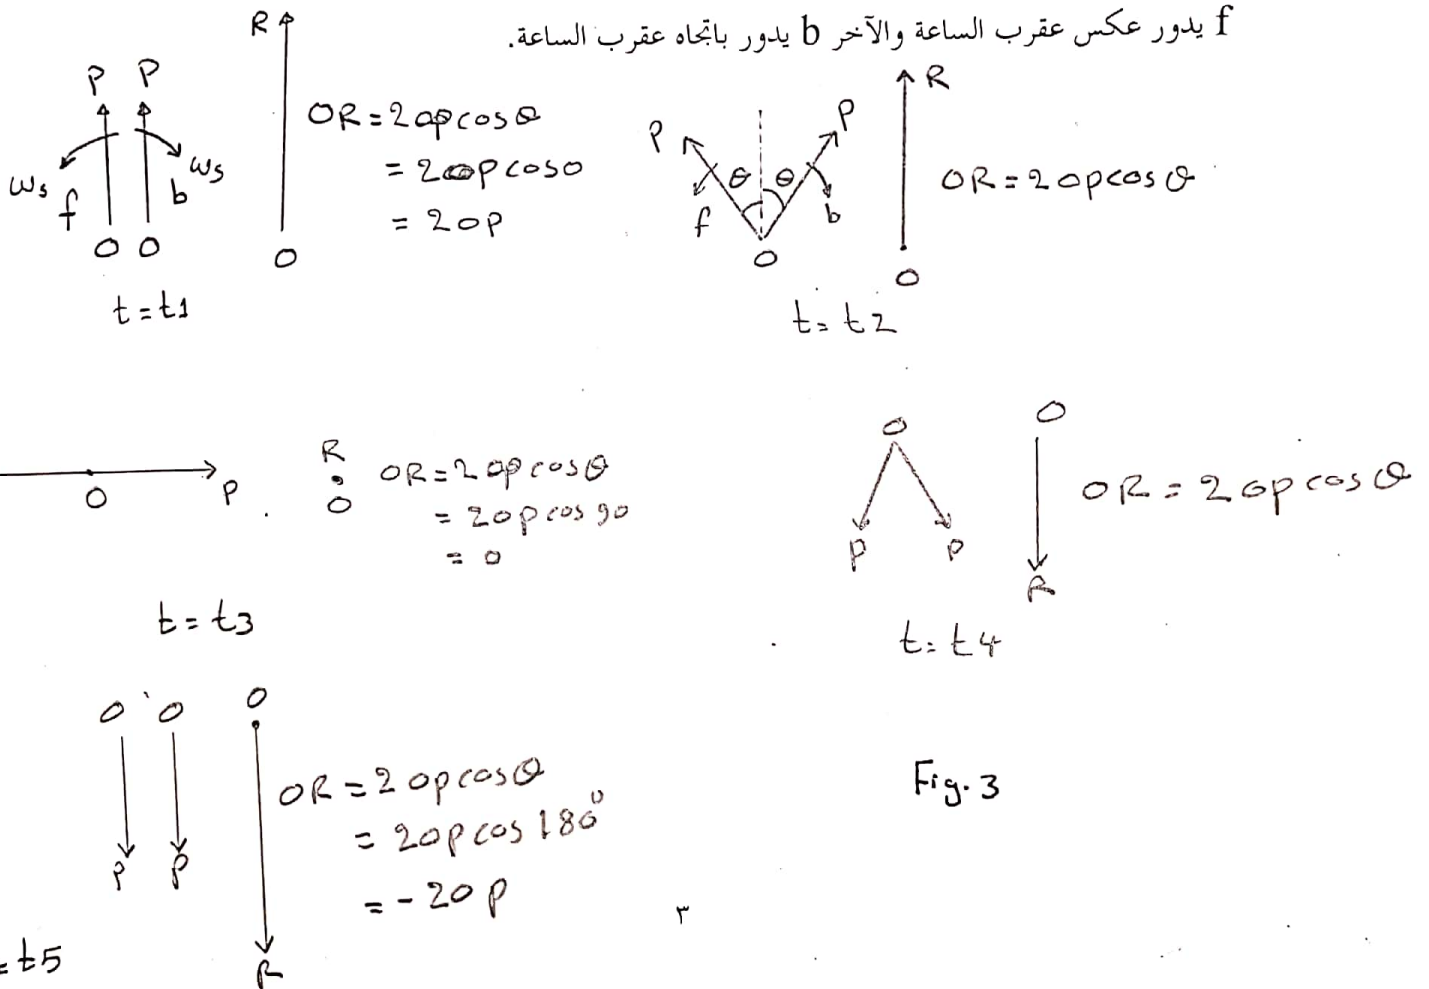 f يدور عكس عقرب الساعة والآخر b يدور باتجاه عقرب الساعة.
P P
ωs f
b ωs
O O
t = t1
R
O
OR = 2 OP cos θ
= 2 OP cos 0
= 2 OP
P P
θ θ
f b
O
R
O
OR = 2 OP cos θ
t = t2
O P
R
O
OR = 2 OP cos θ
= 2 OP cos 90
= 0
t = t3
O
P P
O
R
OR = 2 OP cos θ
t = t4
O O
P P
O
R
OR = 2 OP cos θ
= 2 OP cos 180°
= - 2 OP
= t5
Fig. 3
٣